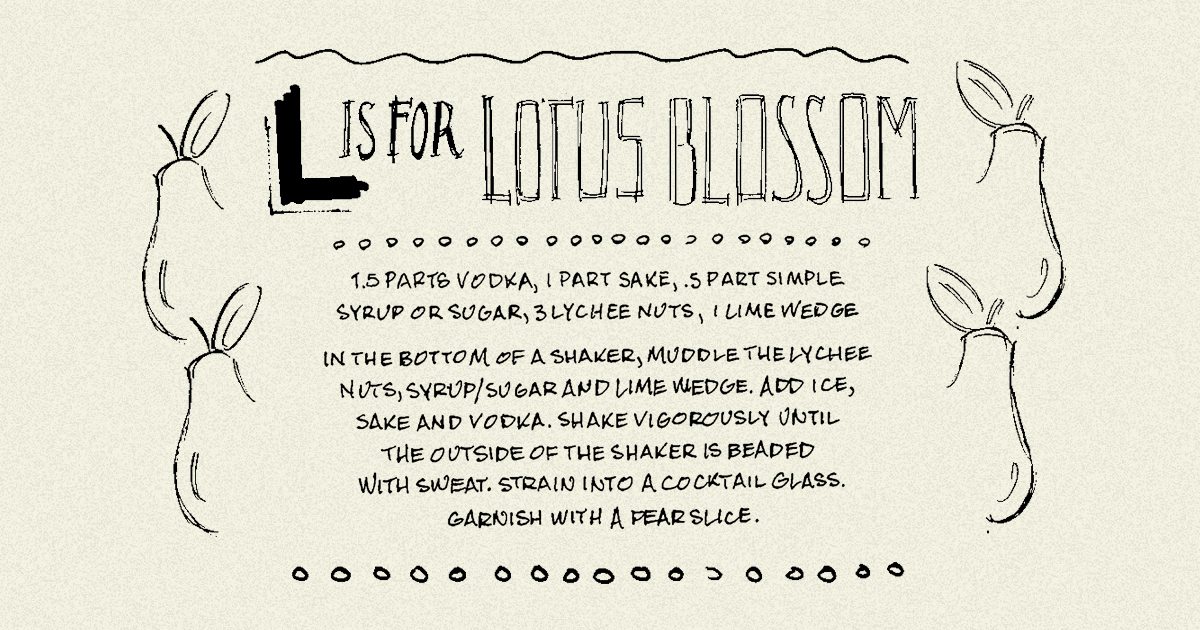 L IS FOR LOTUS BLOSSOM
1.5 PARTS VODKA, 1 PART SAKE, .5 PART SIMPLE
SYRUP OR SUGAR, 3 LYCHEE NUTS, 1 LIME WEDGE
IN THE BOTTOM OF A SHAKER, MUDDLE THE LYCHEE
NUTS, SYRUP/SUGAR AND LIME WEDGE. ADD ICE,
SAKE AND VODKA. SHAKE VIGOROUSLY UNTIL
THE OUTSIDE OF THE SHAKER IS BEADED
WITH SWEAT. STRAIN INTO A COCKTAIL GLASS.
GARNISH WITH A PEAR SLICE.